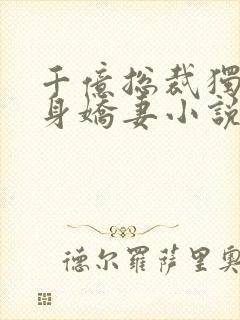 千億總裁獨
身嬌妻小說
德尔羅萨里奧